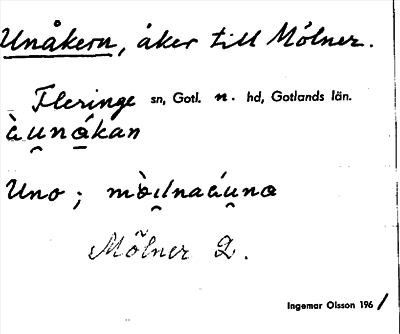 Unåkern, åker till Mölner.
Fleringe sn, Gotl. n. hd, Gotlands län.
Uno;
Mölner 2.
Ingemar Olsson 196/